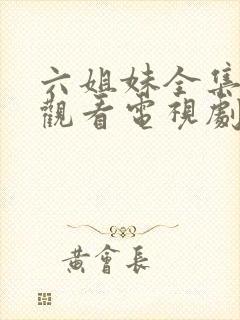 六姐妹全集
觀看電視劇
黃會長